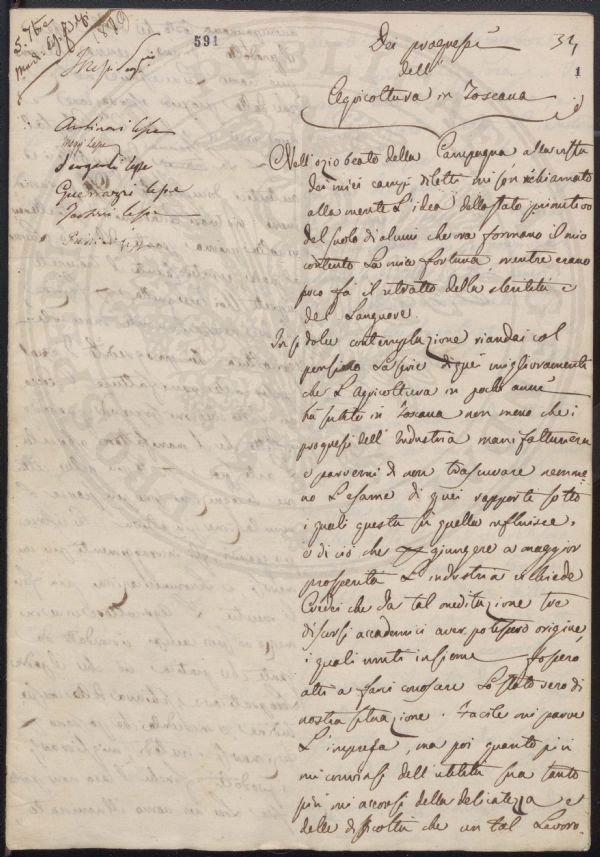 5. 7bre
1819
591
34
1
Dei progressi
dell'
Agricoltura in Toscana
Antinori
Sergardi
Guerrazzi
Nell'ozio beato della Campagna alla vista
dei miei campi diletti mi son richiamato
alla mente l'idea dello stato primitivo
del suolo di alcuni che ora formano il mio
contento la mia fortuna mentre erano
poco fà il ritratto della sterilità e
del Languore.
In sì dolce contemplazione riandai col
pensiero la serie di quei miglioramenti
che l'Agricoltura in pochi anni
hà subito in Toscana non meno che i
progressi dell'Industria manifatturiera
e parvemi di non trascurare nemme=
no l'esame di quei rapporti sotto
i quali questa sù quella influisce,
e di ciò che a giungere a maggior
prosperità l'industria richiede
Credei che da tal meditazione tre
discorsi accademici aver potessero origine,
i quali uniti insieme fossero
atti a farci conoscere lo stato vero di
nostra situazione. Facile mi parve
l'impresa, ma poi quanto più
mi convinsi dell'utilità sua tanto
più mi accorsi della delicatezza e
delle difficoltà che un tal lavoro